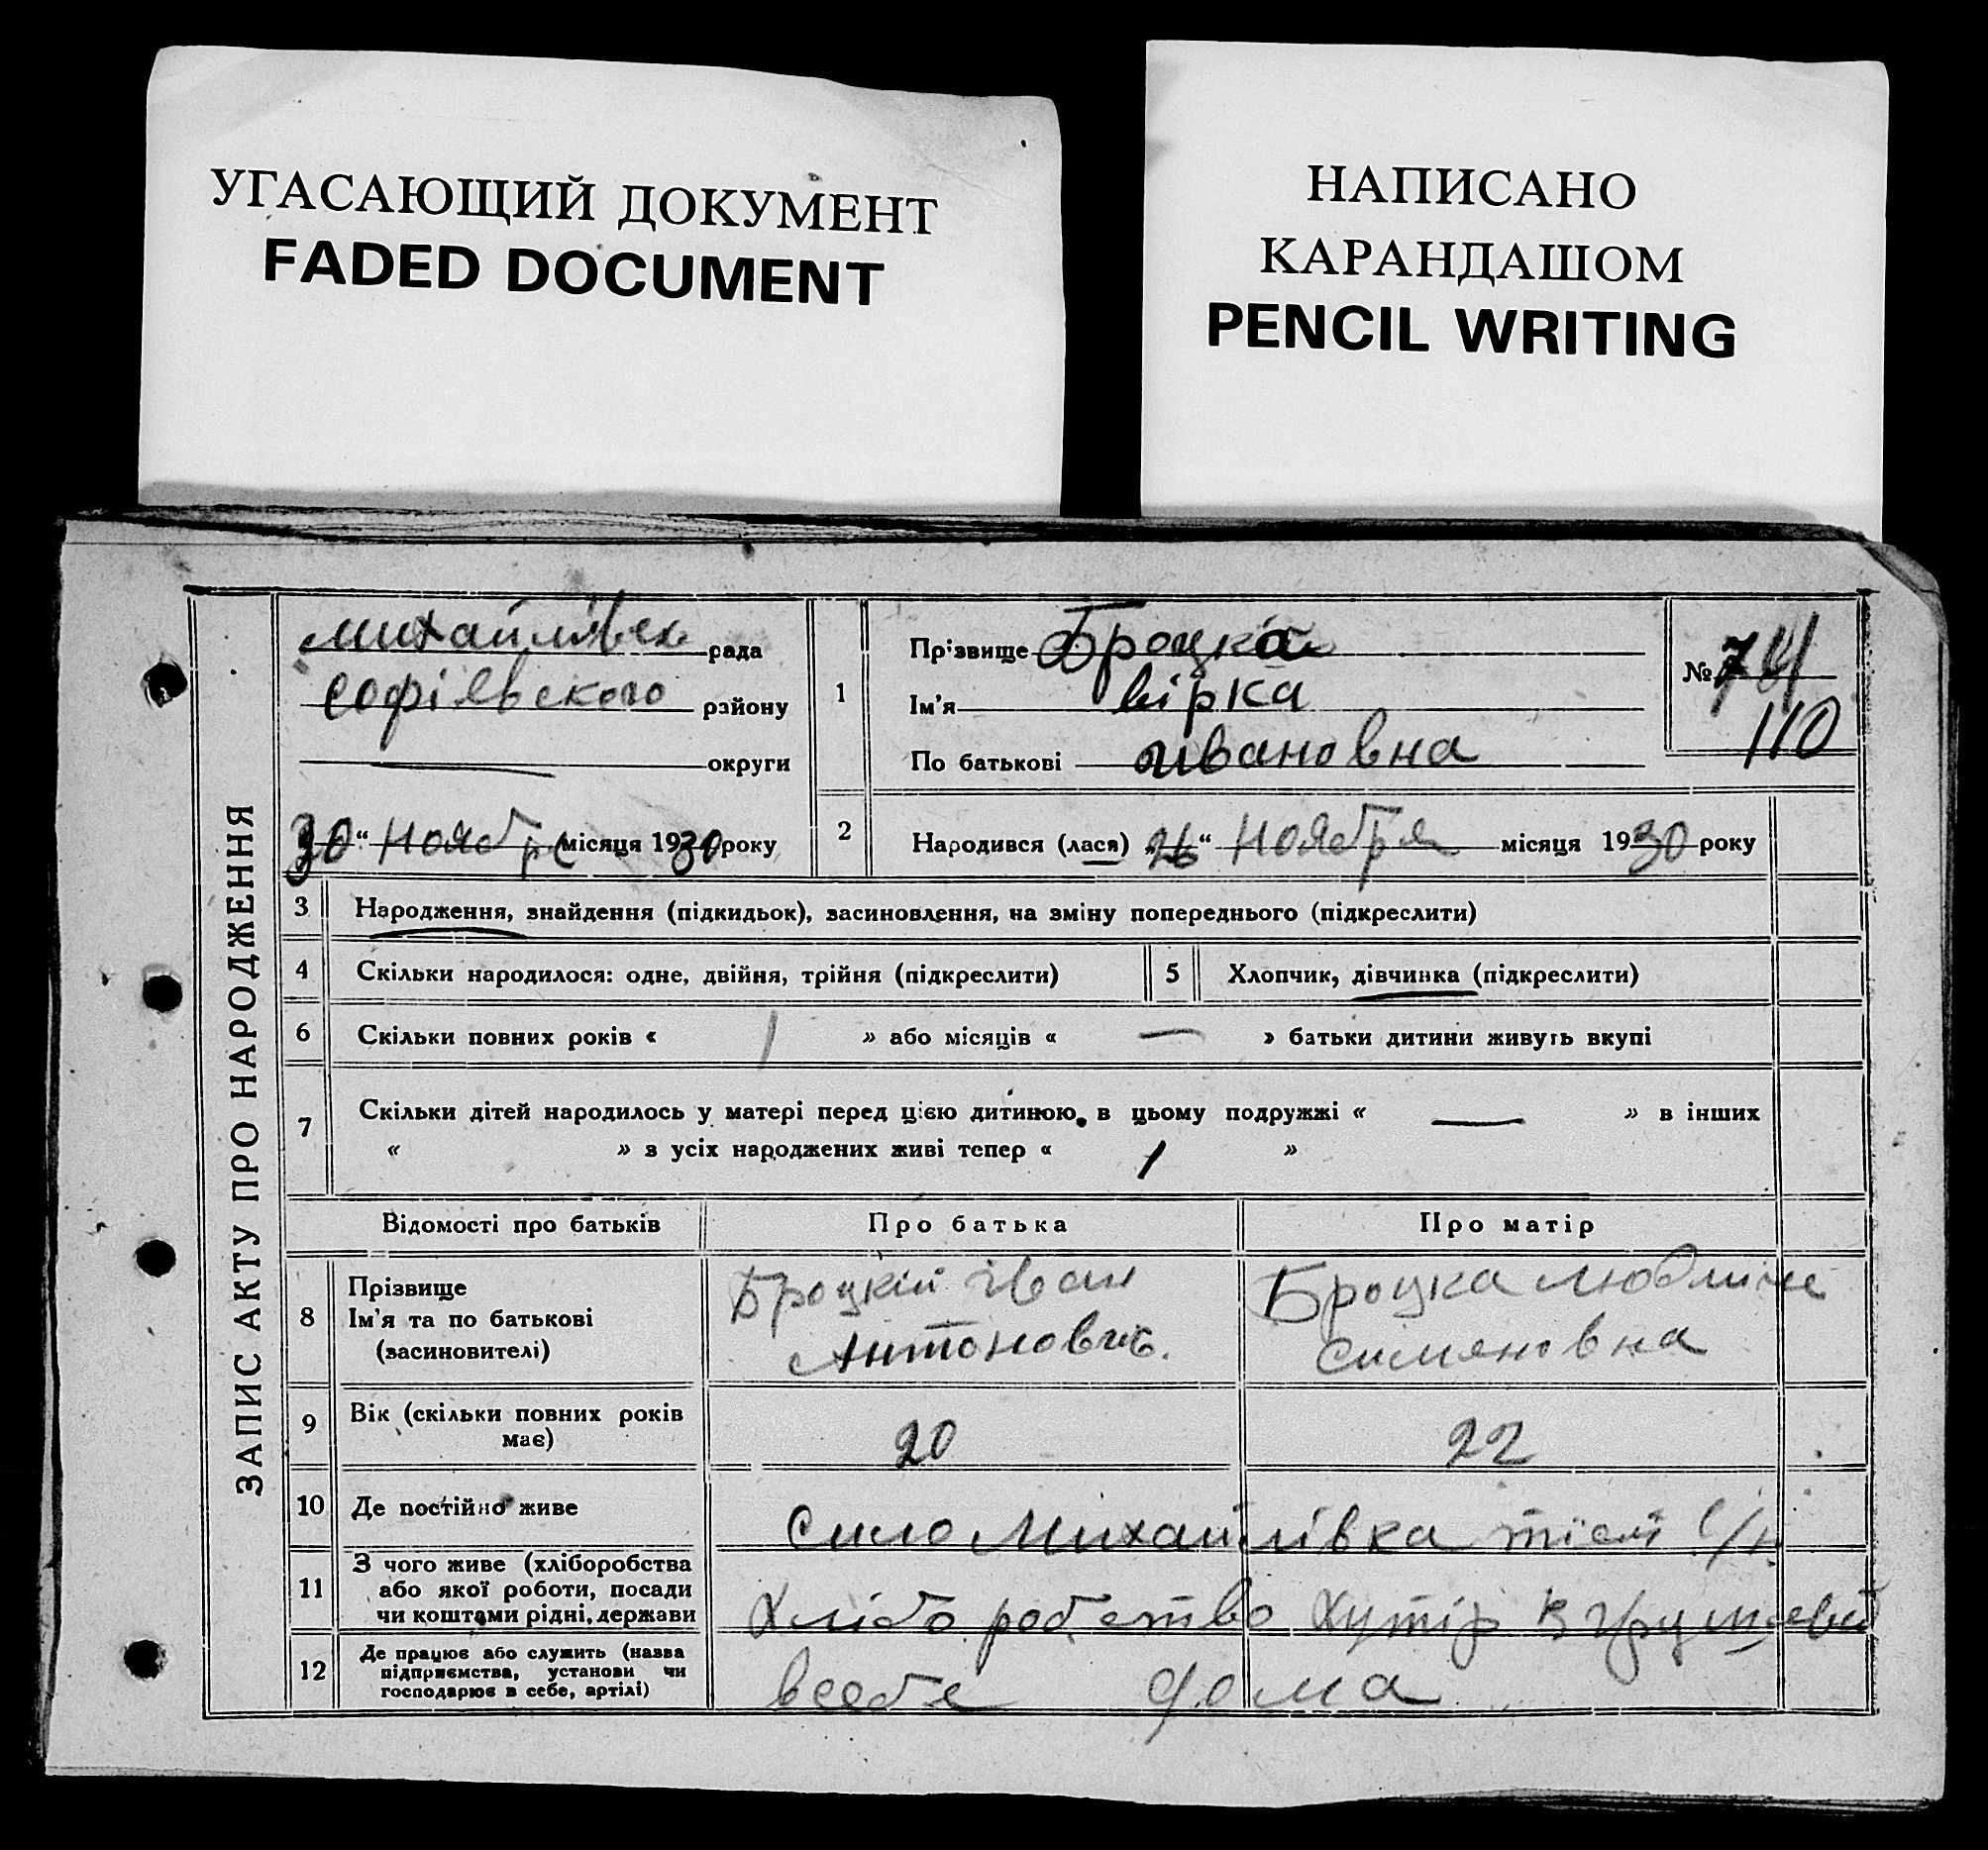 УГАСАЮЩИЙ ДОКУМЕНТ
FADED DOCUMENT
НАПИСАНО
КАРАНДАШОМ
PENCIL WRITING
ЗАПИС АКТУ ПРО НАРОДЖЕННЯ
михайлівск рада
софіявского району
округи
30 “ Ноября місяця 1930 року
1
Прізвище Броцка
Ім'я вірка
По батькові ивановна
№ 74
110
2
Народився (лася) 26 “ Ноября місяця 1930 року
3 Народження, знайдення (підкидьок), засиновлення, на зміну попереднього (підкреслити)
4 Скільки народилося: одне, двійня, трійня (підкреслити) 5 Хлопчик, дівчинка (підкреслити)
6 Скільки повних років « 1 » або місяців « — » батьки дитини живуть вкупі
7 Скільки дітей народилось у матері перед цією дитиною, в цьому подружжі « — » в інших
« » з усіх народжених живі тепер « 1 »
Відомості про батьків Про батька Про матір
8 Прізвище
Ім'я та по батькові
(засиновителі)
Броцкій Іван
Антонович.
Броцка
Симяновна
9 Вік (скільки повних років
має)
20 22
10 Де постійно живе Сило Михайлівка
11 З чого живе (хліборобства
або якої роботи, посади
чи коштами рідні, держави
Хлібо робство Хутір
12 Де працює або служить (назва
підприємства, установи чи
господарює в себе, артілі)
всебе дома